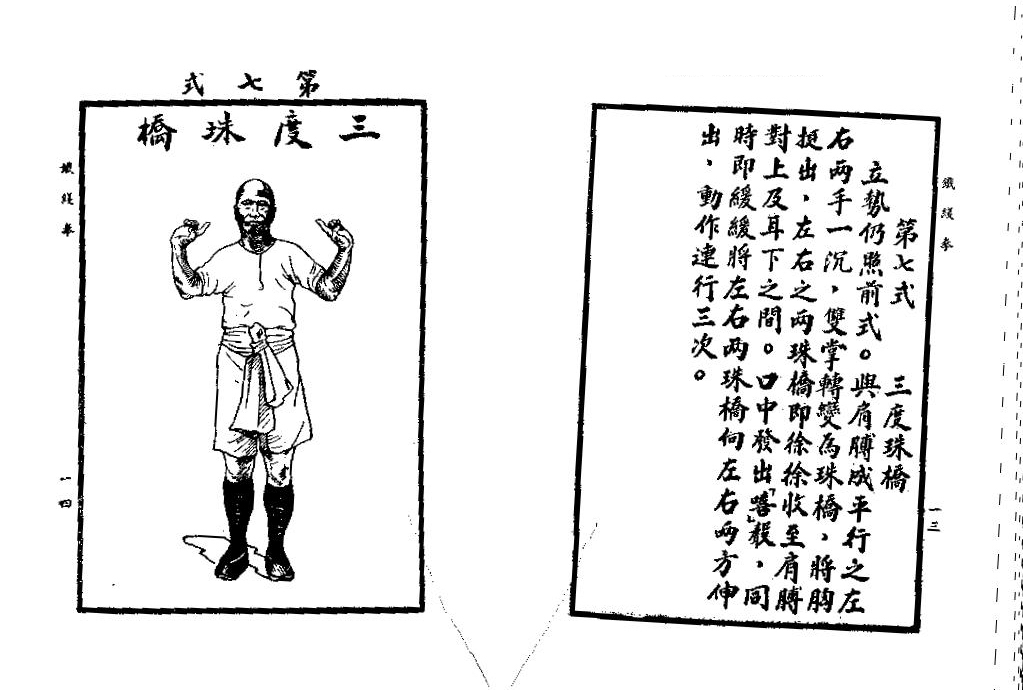 鐵綫拳
一三
第七式　三度珠橋
立勢仍照前式。與肩膊成平行之左
右两手一沉，雙掌轉變為珠橋，將胸
挺出，左右之两珠橋即徐徐收至肩膊
對上及耳下之間。口中發出「嘻」聲，同
時即緩緩將左右两珠橋向左右两方伸
出，動作連行三次。
第七式
三度珠橋
鐵綫拳
一四